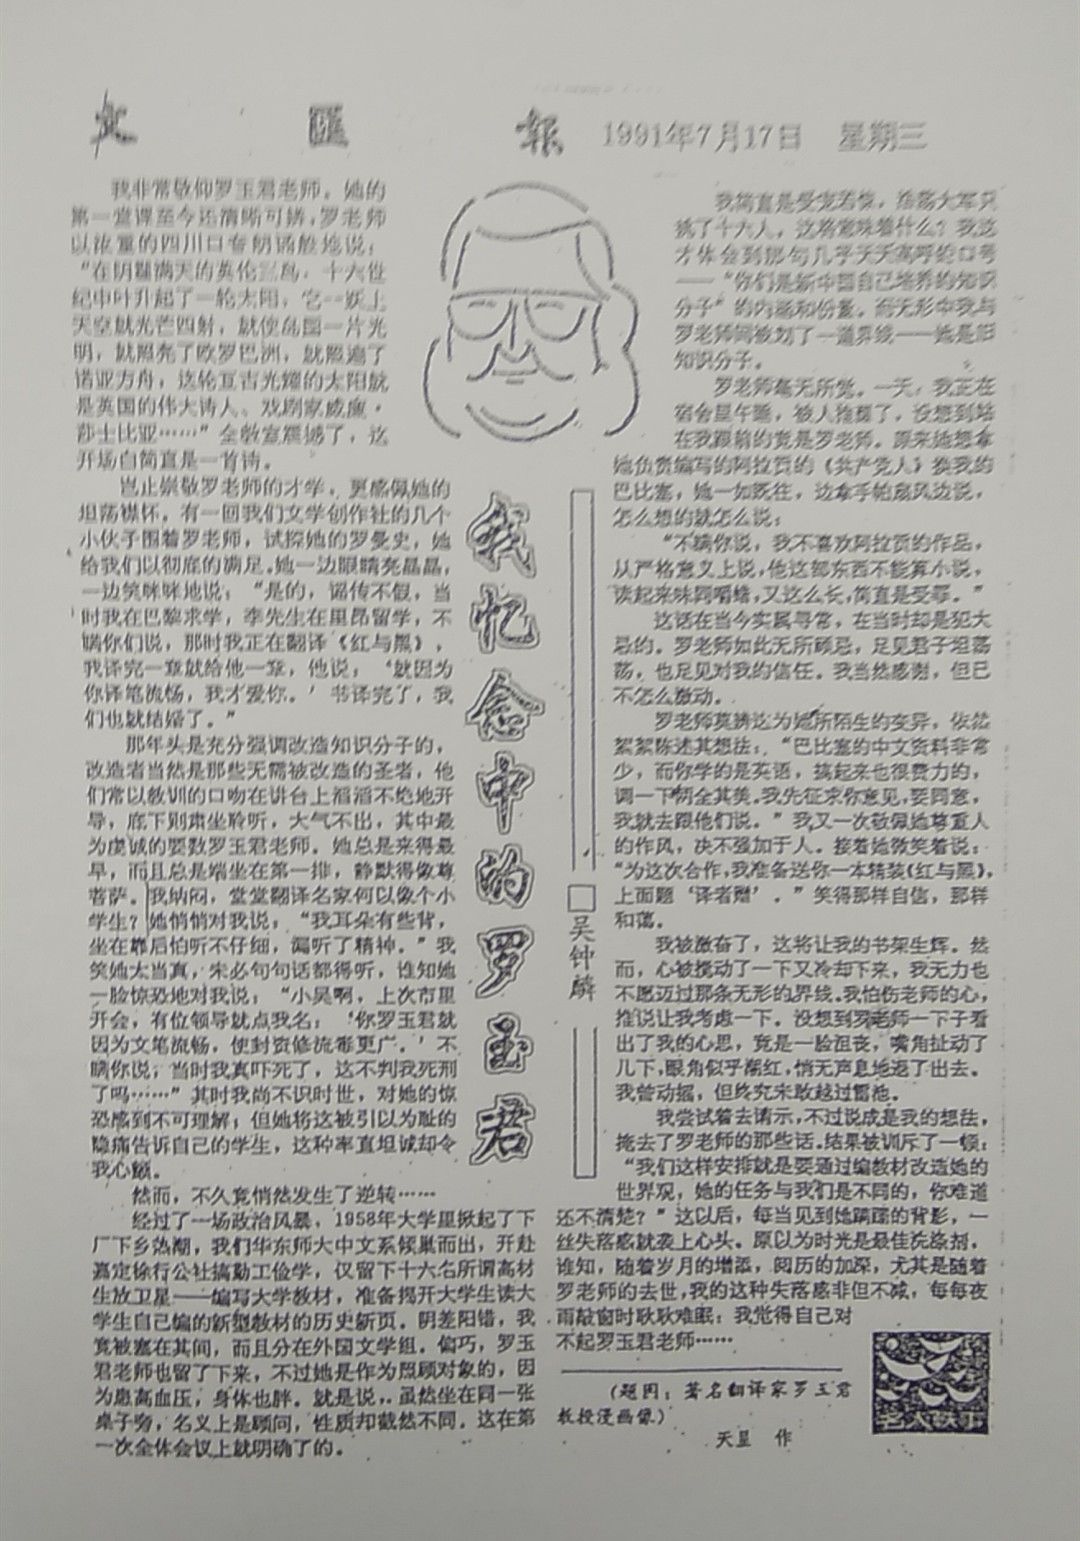 文匯報 1991年7月17日 星期三
我非常敬仰罗玉君老师。她的
第一堂课至今还清晰可辨,罗老师
以浓重的四川口音朗诵般地说:
“在阴霾满天的英伦三岛,十六世
纪中叶升起了一轮太阳,它一跃上
天空就光芒四射,就使岛国一片光
明,就照亮了欧罗巴洲,就照遍了
诺亚方舟,这轮亘古光耀的太阳就
是英国的伟大诗人、戏剧家威廉·
莎士比亚……”全教室震撼了,这
开场白简直是一首诗。
岂止崇敬罗老师的才学,更感佩她的
坦荡襟怀。有一回我们文学创作社的几个
小伙子围着罗老师,试探她的罗曼史,她
给我们以彻底的满足。她一边眼睛亮晶晶,
一边笑眯眯地说:“是的,谣传不假,当
时我在巴黎求学,李先生在里昂留学,不
瞒你们说,那时我正在翻译《红与黑》,
我译完一章就给他一章,他说,‘就因为
你译笔流畅,我才爱你。’书译完了,我
们也就结婚了。”
那年头是充分强调改造知识分子的,
改造者当然是那些无需被改造的圣者,他
们常以教训的口吻在讲台上滔滔不绝地开
导,底下则肃坐聆听,大气不出,其中最
为虔诚的要数罗玉君老师。她总是来得最
早,而且总是端坐在第一排,静默得像尊
菩萨。我纳闷,堂堂翻译名家何以像个小
学生?她悄悄对我说:“我耳朵有些背,
坐在靠后怕听不仔细,漏听了精神。”我
笑她太当真,未必句句话都得听,谁知她
一脸惊恐地对我说:“小吴啊,上次市里
开会,有位领导就点我名:‘你罗玉君就
因为文笔流畅,使封资修流毒更广。’不
瞒你说,当时我真吓死了,这不判我死刑
了吗……”其时我尚不识时世,对她的惊
恐感到不可理解;但她将这被引以为耻的
隐痛告诉自己的学生,这种率直坦诚却令
我心颤。
然而,不久竟悄然发生了逆转……
经过了一场政治风暴,1958年大学里掀起了下
厂下乡热潮,我们华东师大中文系倾巢而出,开赴
嘉定徐行公社搞勤工俭学,仅留下十六名所谓高材
生放卫星——编写大学教材,准备揭开大学生读大
学生自己编的新型教材的历史新页。阴差阳错,我
竟被塞在其间,而且分在外国文学组。偏巧,罗玉
君老师也留了下来,不过她是作为照顾对象的,因
为患高血压,身体也胖。就是说,虽然坐在同一张
桌子旁,名义上是顾问,性质却截然不同。这在第
一次全体会议上就明确了的。
我忆念中的罗玉君
□吴钟麟
我简直是受宠若惊,浩荡大军只
挑了十六人,这将意味着什么?我这
才体会到那句几乎天天高呼的口号
——“你们是新中国自己培养的知识
分子”的内涵和份量。而无形中我与
罗老师间被划了一道界线——她是旧
知识分子。
罗老师毫无所觉。一天,我正在
宿舍里午睡,被人推醒了,没想到站
在我跟前的竟是罗老师。原来她想拿
她负责编写的阿拉贡的《共产党人》换我的
巴比塞,她一如既往,边拿手帕扇风边说,
怎么想的就怎么说:
“不瞒你说,我不喜欢阿拉贡的作品,
从严格意义上说,他这部东西不能算小说,
读起来味同嚼蜡,又这么长,简直是受罪。”
这话在当今实属寻常,在当时却是犯大
忌的。罗老师如此无所顾忌,足见君子坦荡
荡,也足见对我的信任。我当然感谢,但已
不怎么激动。
罗老师莫辨这为她所陌生的变异,依然
絮絮陈述其想法:“巴比塞的中文资料非常
少,而你学的是英语,搞起来也很费力的,
调一下两全其美。我先征求你意见,要同意,
我就去跟他们说。”我又一次敬佩她尊重人
的作风,决不强加于人。接着她微笑着说:
“为这次合作,我准备送你一本精装《红与黑》,
上面题‘译者赠’。”笑得那样自信,那样
和蔼。
我被激奋了,这将让我的书架生辉。然
而,心被搅动了一下又冷却下来,我无力也
不愿迈过那条无形的界线。我怕伤老师的心,
推说让我考虑一下。没想到罗老师一下子看
出了我的心思,竟是一脸沮丧,嘴角扯动了
几下,眼角似乎潮红,悄无声息地退了出去。
我曾动摇,但终究未敢越过雷池。
我尝试着去请示,不过说成是我的想法,
掩去了罗老师的那些话。结果被训斥了一顿:
“我们这样安排就是要通过编教材改造她的
世界观,她的任务与我们是不同的,你难道
还不清楚?”这以后,每当见到她蹒跚的背影,一
丝失落感就袭上心头。原以为时光是最佳洗涤剂,
谁知,随着岁月的增添,阅历的加深,尤其是随着
罗老师的去世,我的这种失落感非但不减,每每夜
雨敲窗时耿耿难眠:我觉得自己对
不起罗玉君老师……
(题图:著名翻译家罗玉君
教授漫画像)
天呈 作